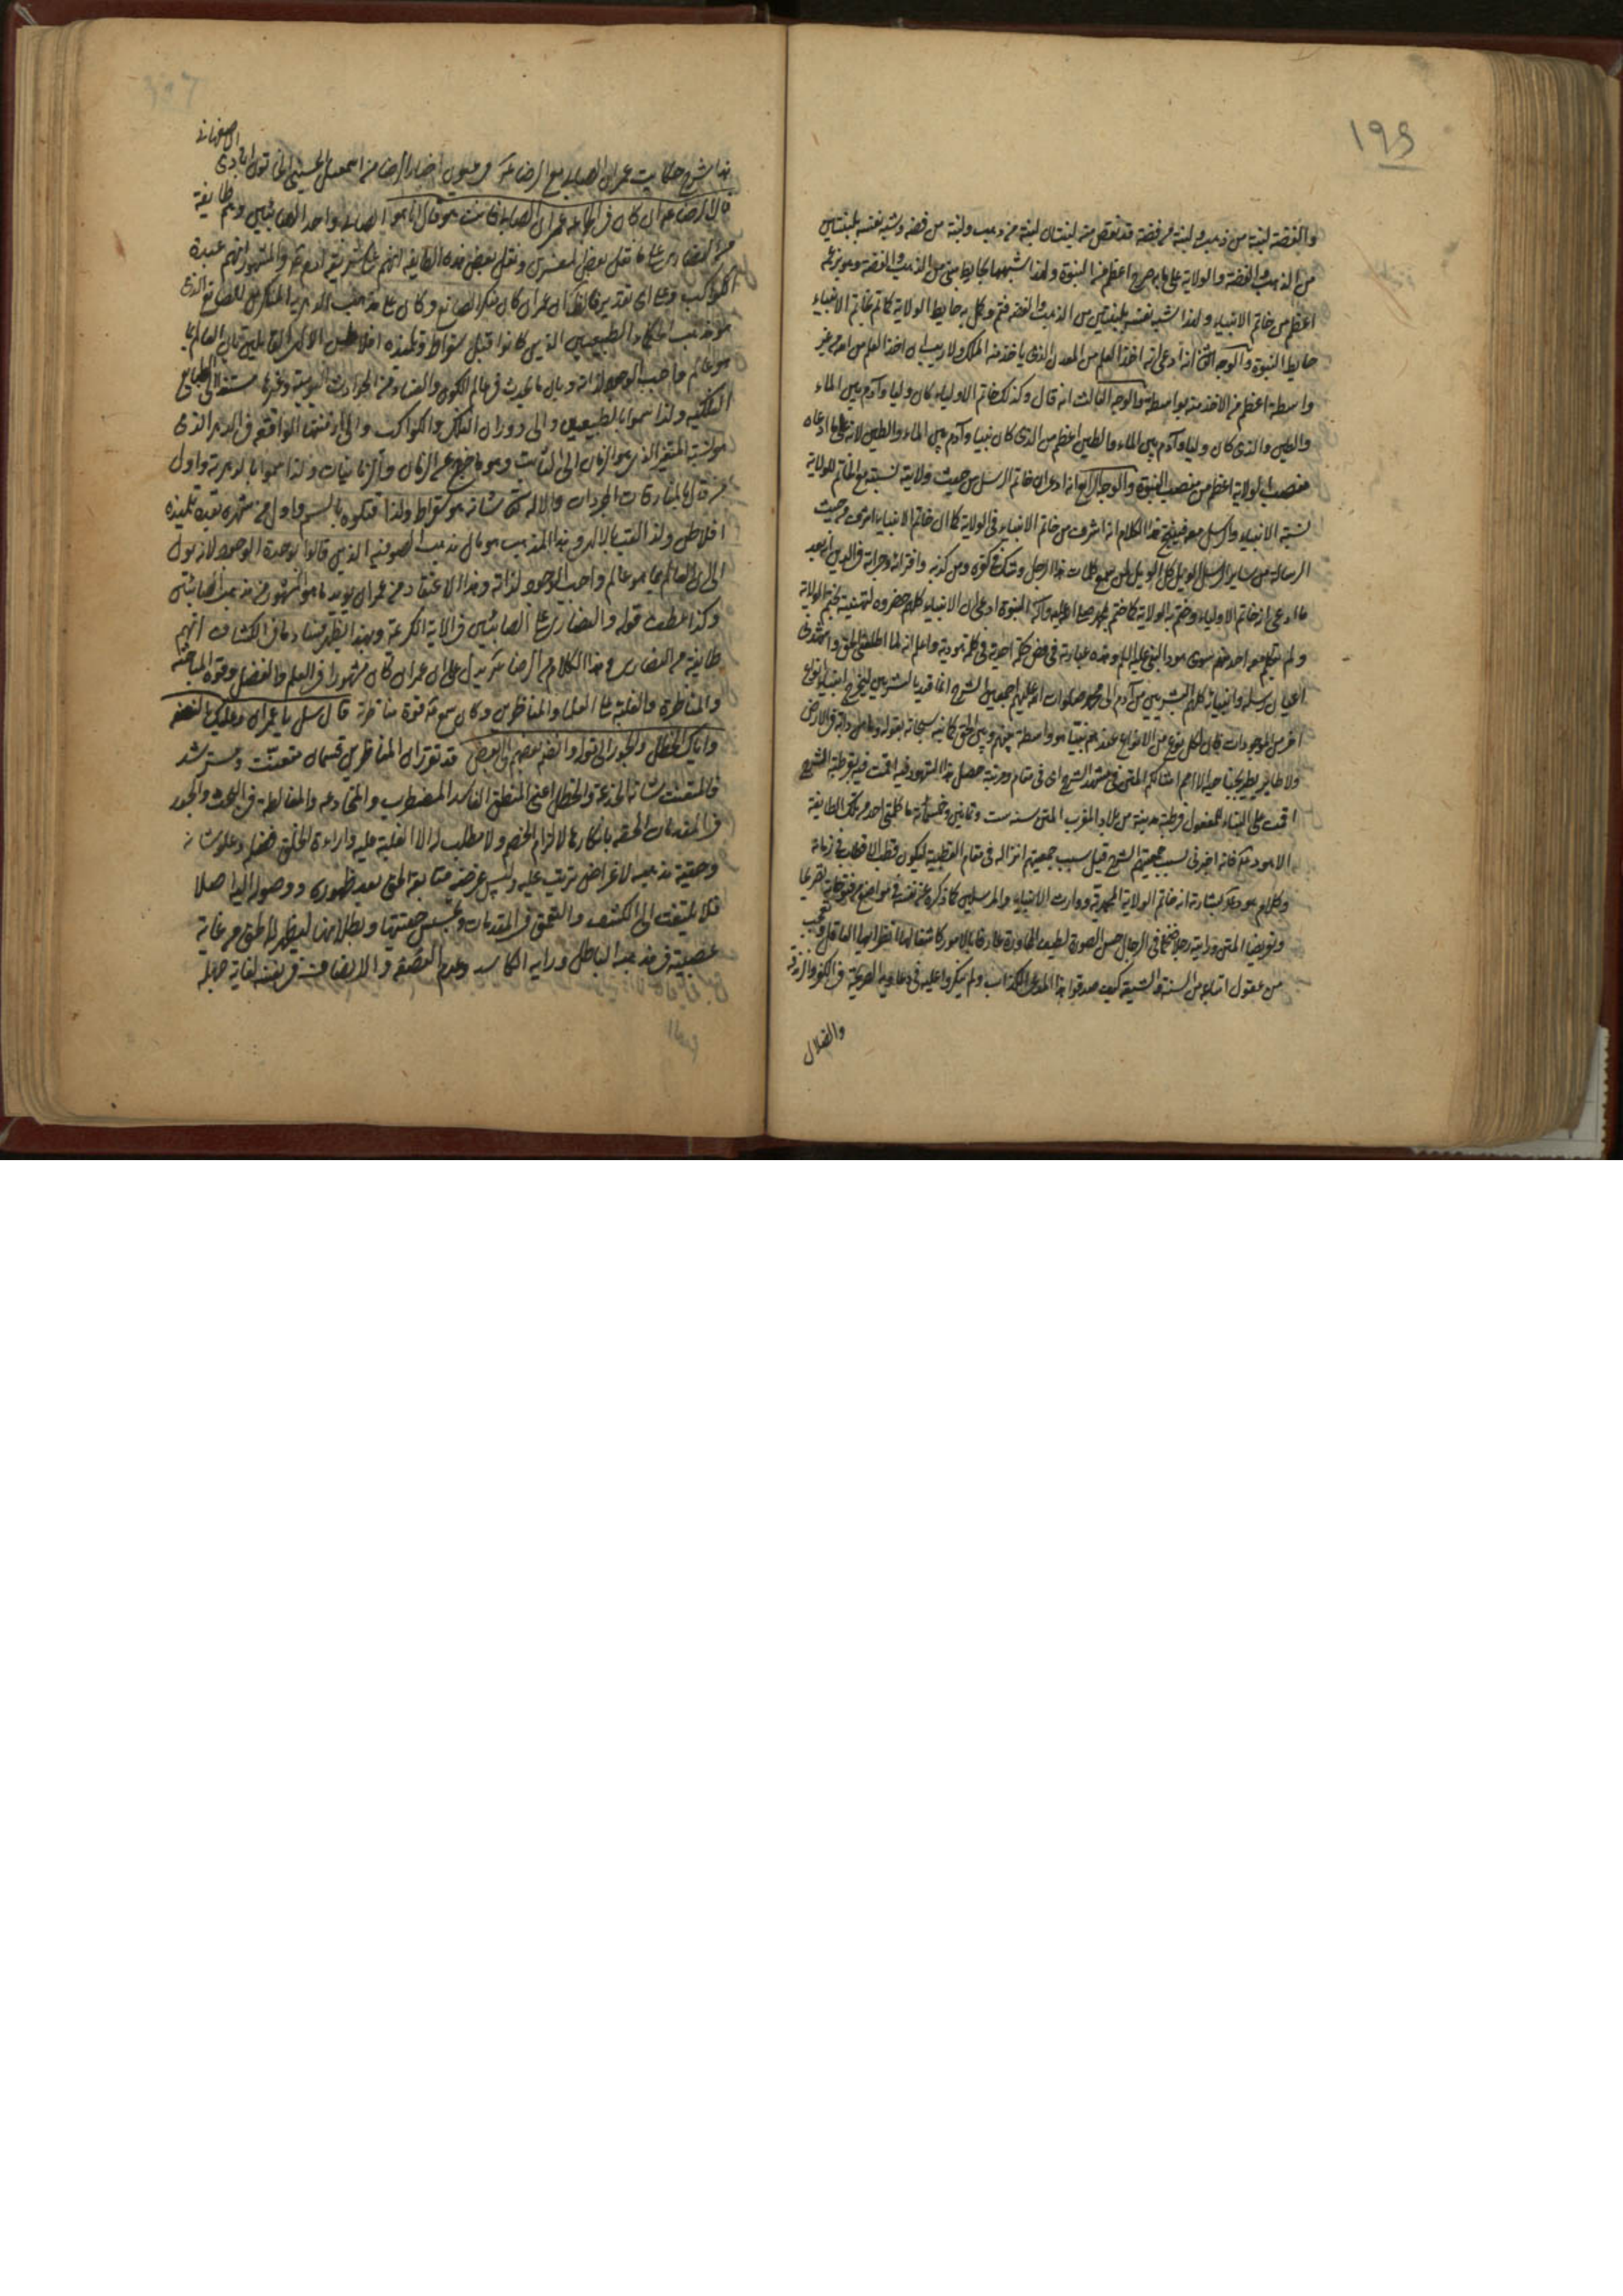 ١٩٤
والفضة لبنة من ذهب ولبنة من فضة قد نقص منه لبنتان لبنة من ذهب ولبنة من فضة وشبه نفسه بلبنتين
من الذهب والفضة والولاية على ما به صرح اعظم من النبوة ولهذا شبهها بحايط مبني من الذهب والفضة وهو بزعمه
اعظم من خاتم الانبياء ولهذا شبه نفسه بلبنتين من الذهب والفضة فتم وكمل به حايط الولاية كما تم بخاتم الانبياء
حايط النبوة والوجه الثاني انه ادعى انه اخذ العلم من المعدن الذي ياخذ منه الملك ولا ريب ان اخذ العلم من الله من غير
واسطة اعظم من الاخذ منه بواسطة والوجه الثالث انه قال وكذلك خاتم الاولياء كان وليا وآدم بين الماء
والطين والذي كان وليا وآدم بين الماء والطين اعظم من الذي كان نبيا وآدم بين الماء والطين لانه على ما ادعاه
منصب الولاية اعظم من منصب النبوة والوجه الرابع انه ادعى ان خاتم الرسل من حيث ولايته نسبته مع الخاتم للولاية
نسبة الانبياء والرسل معه فينتج هذا الكلام انه اشرف من خاتم الانبياء في الولاية كما ان خاتم الانبياء اشرف من حيث
الرسالة من ساير الرسل الويل كل الويل لمن سمع كلمات هذا الرجل وشك في كفره ومن كذبه وافترائه وجرأته في الدين انه بعد
ما ادعى انه خاتم الاولياء وختم به الولاية كما ختم بمحمد صلى الله عليه وآله النبوة ادعى ان الانبياء كلهم حضروه لتهنيته بختم الولاية
ولم يتكلم معه احد منهم سوى هود النبي عليه السلام وهذه عبارته في فص حكمة احدية في كلمة هودية واعلم انه لما اطلعني الحق واشهدني
اعيان رسله وانبيائه كلهم البشريين من آدم الى محمد صلوات الله عليهم اجمعين الشرح انما قيد بالبشريين ليخرج انبياء انواع
اخر من الموجودات فان لكل نوع من الانواع عندهم نبيا هو واسطة بينهم وبين الحق كما نبه سبحانه بقوله وما من دابة في الارض
ولا طاير يطير بجناحيه الا امم امثالكم المتن في مشهد الشرح اى في مقام ومرتبة حصل هذا الشهود فيه اقمت فيه بقرطبة الشرح
اقمت على البناء للمفعول قرطبة مدينة من بلاد المغرب المتن سنه ست وثمانين وخمسمائة ما كلمني احد من تلك الطايفة
الا هود عم فانه اخبرني بسبب جمعيتهم الشرح قيل سبب جمعيتهم انزاله في مقام القطبية ليكون قطب الاقطاب في زمانه
وكلام هود عم بشارته انه خاتم الولاية المحمدية ووارث الانبياء والمرسلين كما ذكره عن نفسه في مواضع من فتوحاته تصريحا
وتعريضا المتن ورايته رجلا ضخما في الرجال حسن الصورة لطيف المحاورة عارفا بالامور كاشفا لها انظر ايها العاقل وتعجب
من عقول اتباعه من السنة والشيعة كيف صدقوا هذا المدعي الكذاب ولم ينكروا عليه في دعاويه الصريحة في الكفر والزندقة
والضلال
هذا شرح حكايت عمران الصابى مع الرضا عم من عيون اخبار الرضا من اسمعيل الحسيني الخاتون ابادى
الاصفهانى
قال الرضا عم ان كان في الجماعه عمران الصابى فانت هو قال انا هو الصابى واحد الصابئين وهم طايفة
من النصارى على ما نقل بعض المفسرين ونقل بعض هذه الطايفه انهم على شريعة آدم عم والمشهور انهم عبدة
الكواكب وعلى اى تقدير فالظاهر ان عمران كان منكر الصانع وكان على مذهب الدهرية المنكرين للصانع الذى
هو مذهب الحكماء الطبيعيين الذين كانوا قبل سقراط وتلميذه افلاطون الالهى القائلين بان العالم بما
هو عالم واجب الوجود لذاته وبان ما يحدث في عالم الكون والفساد من الحوادث اليومية وغيرها مستند الى الطبايع
الفلكيه ولذا سموا بالطبيعيين والى دوران الفلك والكواكب والى ازمنتها الواقعة في الدهر الذى
هو نسبة المتغير الذى هو الزمان الى الثابت وهو ما خرج عن الزمان والزمانيات ولذا سموا بالدهرية واول
من قال بالمفارقات المجردات والاله تعالى شانه هو سقراط ولذا قتلوه بالسم واول من شهره بعده تلميذه
افلاطن ولذا لقب بالالهى وهذا المذهب هو مآل مذهب الصوفيه الذين قالوا بوحدة الوجود لانه يول
الى ان العالم بما هو عالم واجب الوجود لذاته وهذا الاعتقاد من عمران يؤيد ما هو المشهور من مذهب الصابئين
وكذا عطف قوله والنصارى على الصابئين في الآية الكريمة وبهذا يظهر فساد ما في الكشاف انهم
طايفة من النصارى وهذا الكلام من الرضا عم يدل على ان عمران كان مشهورا في العلم والفضل وقوة المباحثة
والمناظرة والغلبة على العلماء والمناظرين وكان سمع منه قوة مناظرة قال سل يا عمران وعليك بالنصفه
واياك والخطل والجور الى قوله وانضم بعضهم الى بعض قد تقرر ان المناظرين قسمان متعنت ومسترشد
فالمتعنت شانه الخدعة والخطل اعنى المنطق الفاسد المضطرب والمخادعه والمغالطة في البحث والجور
في المقدمات الحقه بانكارها لالزام الخصم ولا مطلب له الا الغلبة عليه واراءة الخلق فضله وعلو شانه
وحقية مذهبه لاغراض يترتب عليه وليس غرضه متابعة الحق بعد ظهوره ووصوله اليه اصلا
فلا يلتفت الى الكشف والتعمق في المقدمات وتجسس حقيتها وبطلانها ليظهر له الحق من غاية
عصبيته في مذهبه الباطل ورايه الكاسد وعدم النصفة والانصاف من نفسه لغاية جهله